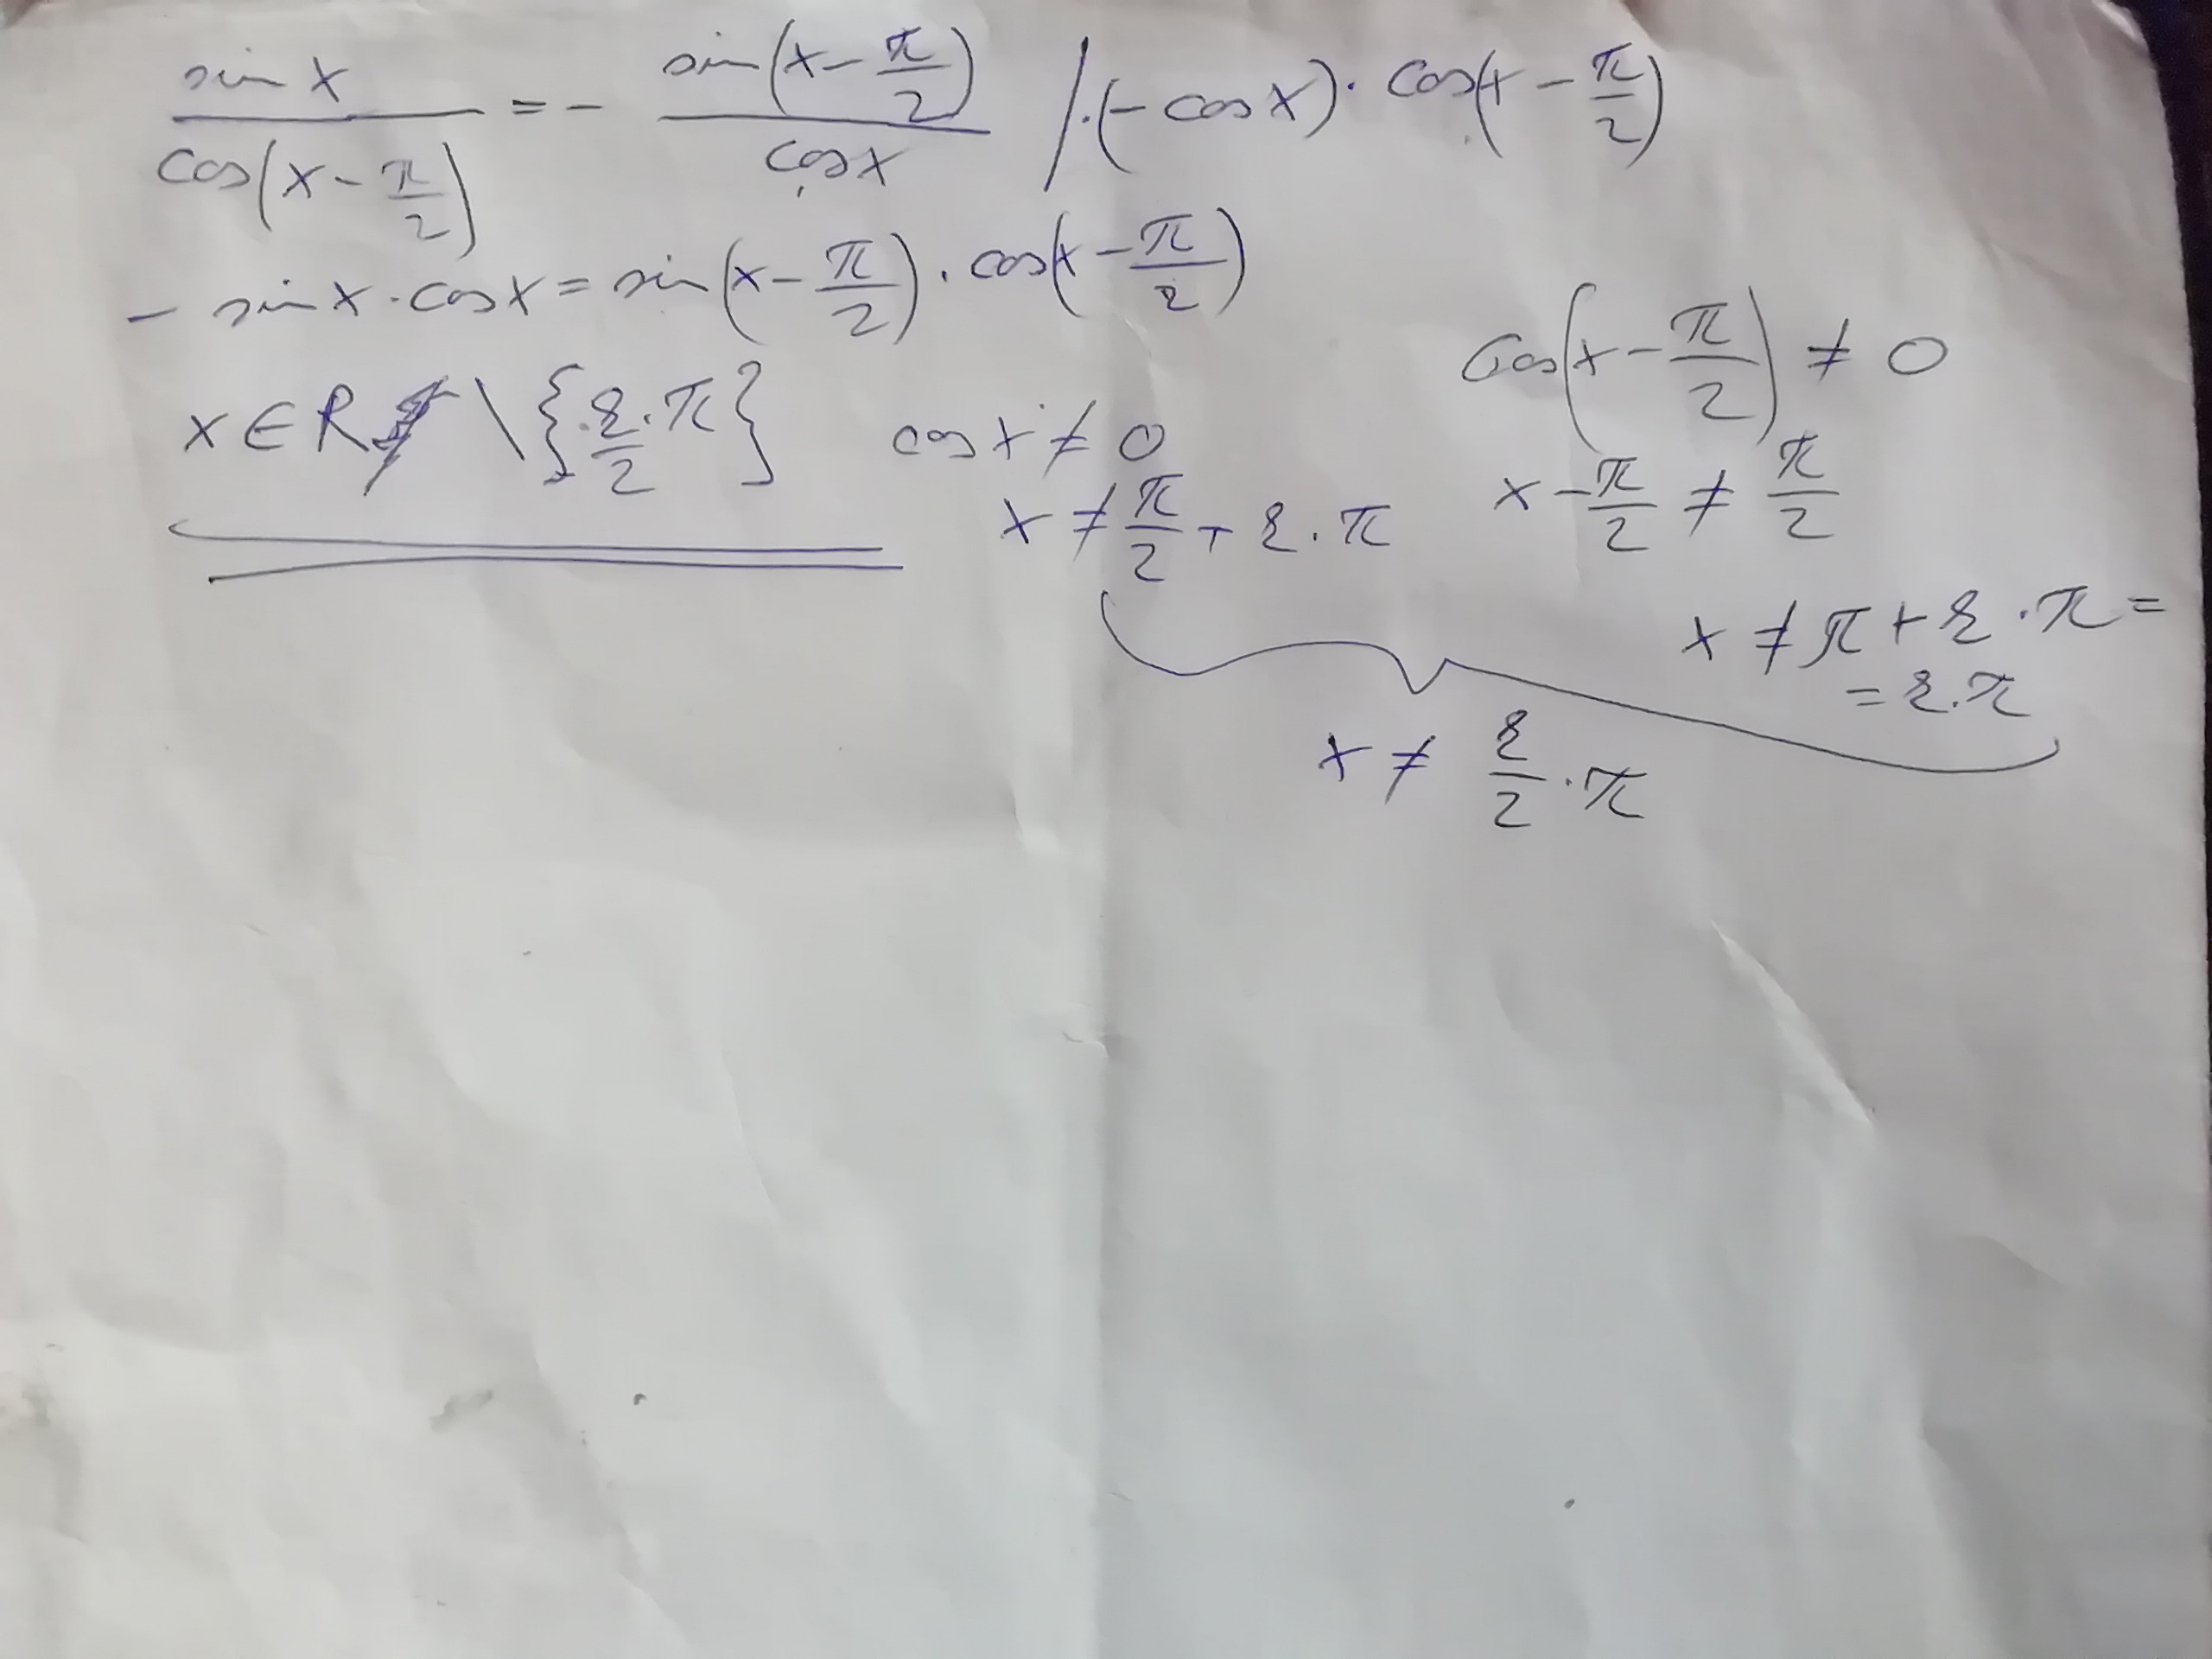 sin x / cos(x - π/2) = - sin(x - π/2) / cos x /·(- cos x)· cos(x - π/2)
- sin x · cos x = sin(x - π/2) · cos(x - π/2)
x ∈ R \ {k/2 · π}
cos x ≠ 0
x ≠ π/2 + k · π
cos(x - π/2) ≠ 0
x - π/2 ≠ π/2
x ≠ π + k · π =
= k · π
x ≠ k/2 · π